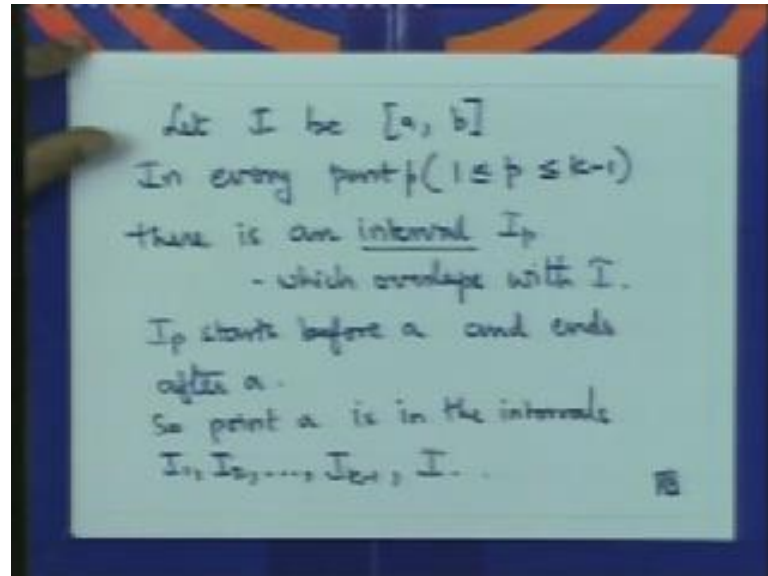 Let I be [a, b]
In every part p (1 ≤ p ≤ k-1)
there is an interval Ip
- which overlaps with I.
Ip starts before a and ends
after a.
So point a is in the intervals
I1, I2, ..., Ik-1, I.